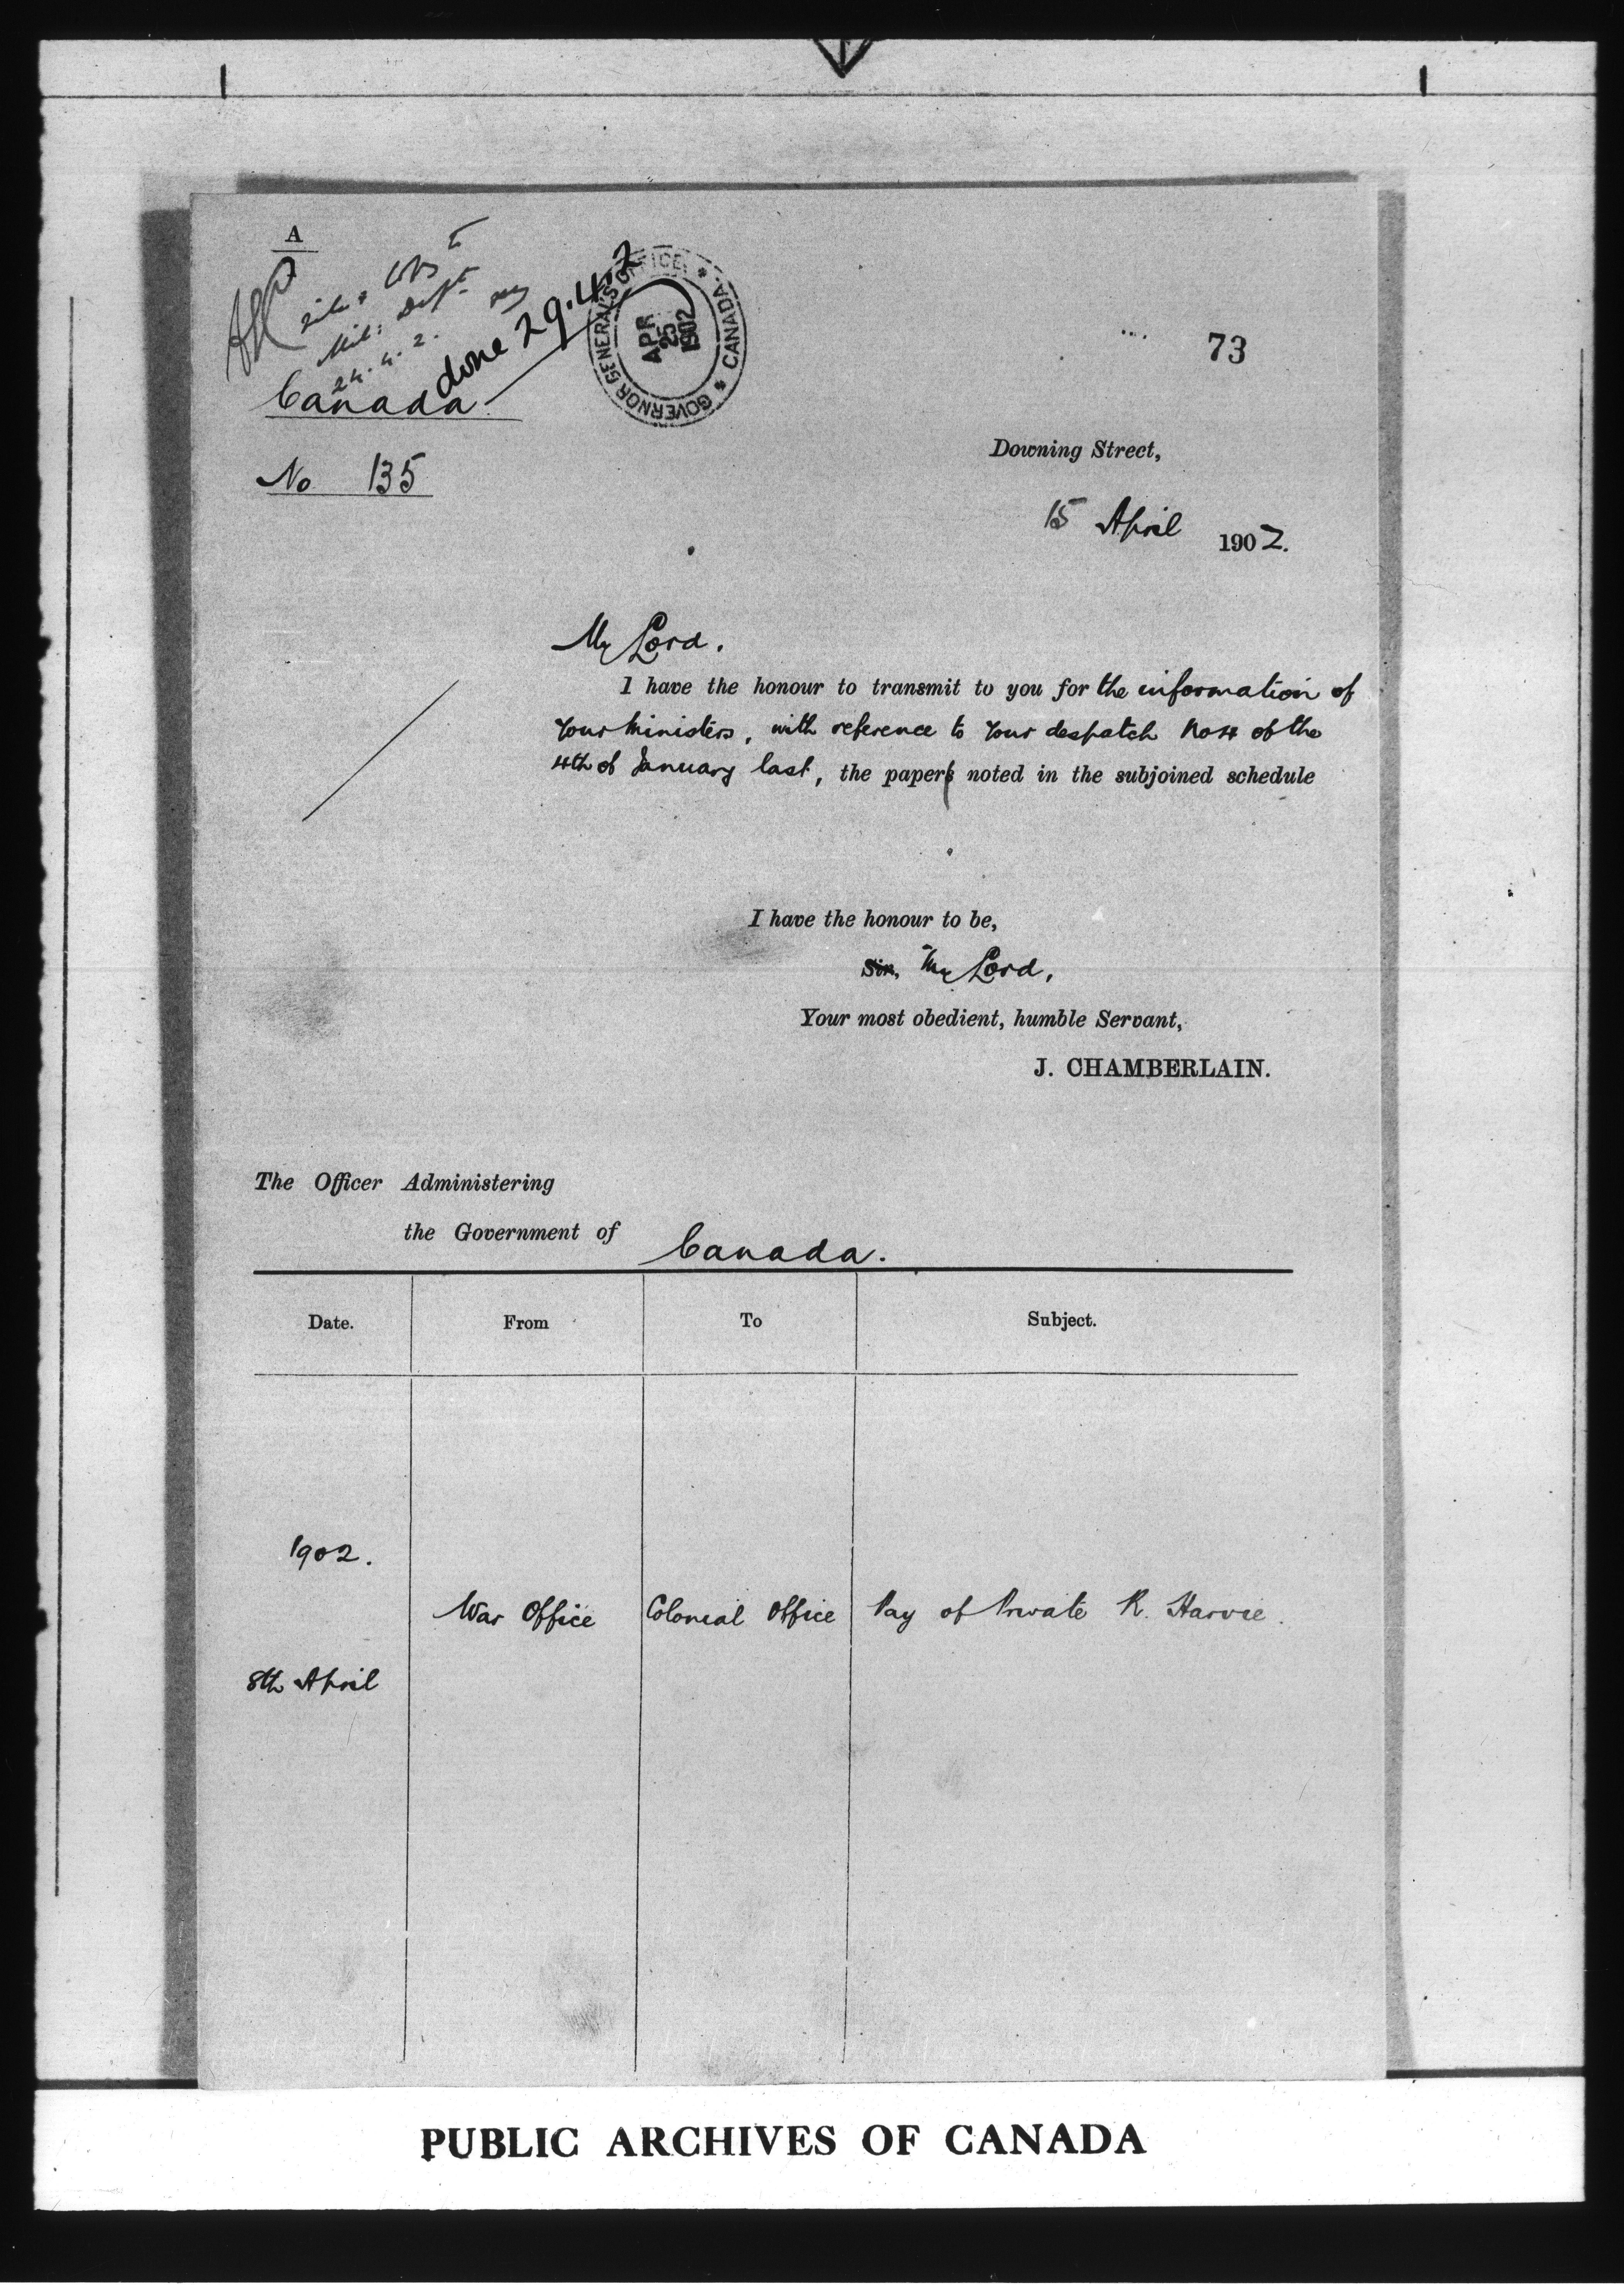 A
done 29.4.2
24.4.2.
GOVERNOR GENERAL'S OFFICE * CANADA *
APR
25
1902
73
Canada
No 135
Downing Street,
15 April 1902.
My Lord,
I have the honour to transmit to you for the information of
Your Ministers, with reference to Your despatch No 4 of the
4th of January last, the paper noted in the subjoined schedule
I have the honour to be,
Sir, My Lord,
Your most obedient, humble Servant,
J. CHAMBERLAIN.
The Officer Administering
the Government of Canada.
Date. From To Subject.
1902.
War Office Colonial Office Pay of Private R. Harvie.
8th April
PUBLIC ARCHIVES OF CANADA